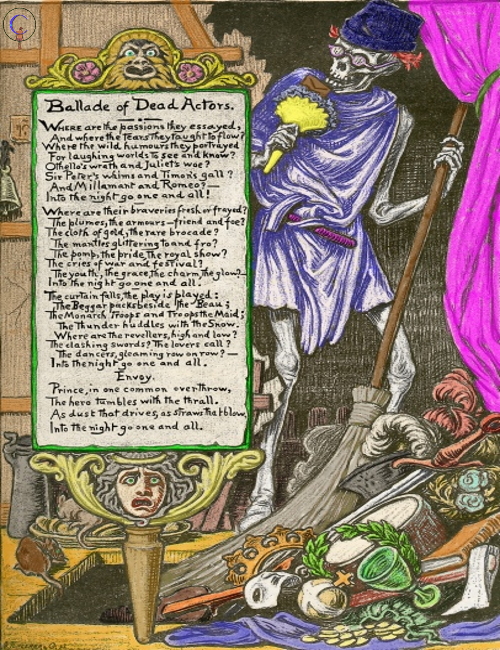 Ballade of Dead Actors.
WHERE are the passions they essayed,
And where the tears they taught to flow?
Where the wild humours they portrayed
For laughing worlds to see and know?
Othello's wrath and Juliet's woe?
Sir Peter's whims and Timon's gall?
And Millamant and Romeo?—
Into the night go one and all!
Where are their braveries fresh or frayed?
The plumes, the armours—friend and foe?
The cloth of gold, the rare brocade?
The mantles glittering to and fro?
The pomp, the pride, the royal show?
The cries of war and festival?
The youth, the grace, the charm, the glow?—
Into the night go one and all.
The curtain falls, the play is played:
The Beggar packs beside the Beau;
The Monarch Troops and Troops the Maid;
The Thunder huddles with the Snow.
Where are the revellers, high and low?
The clashing swords? The lovers call?
The dancers, gleaming row on row?—
Into the night go one and all.
Envoy.
Prince, in one common overthrow,
The hero tumbles with the thrall.
As dust that drives, as straws that blow,
Into the night go one and all.